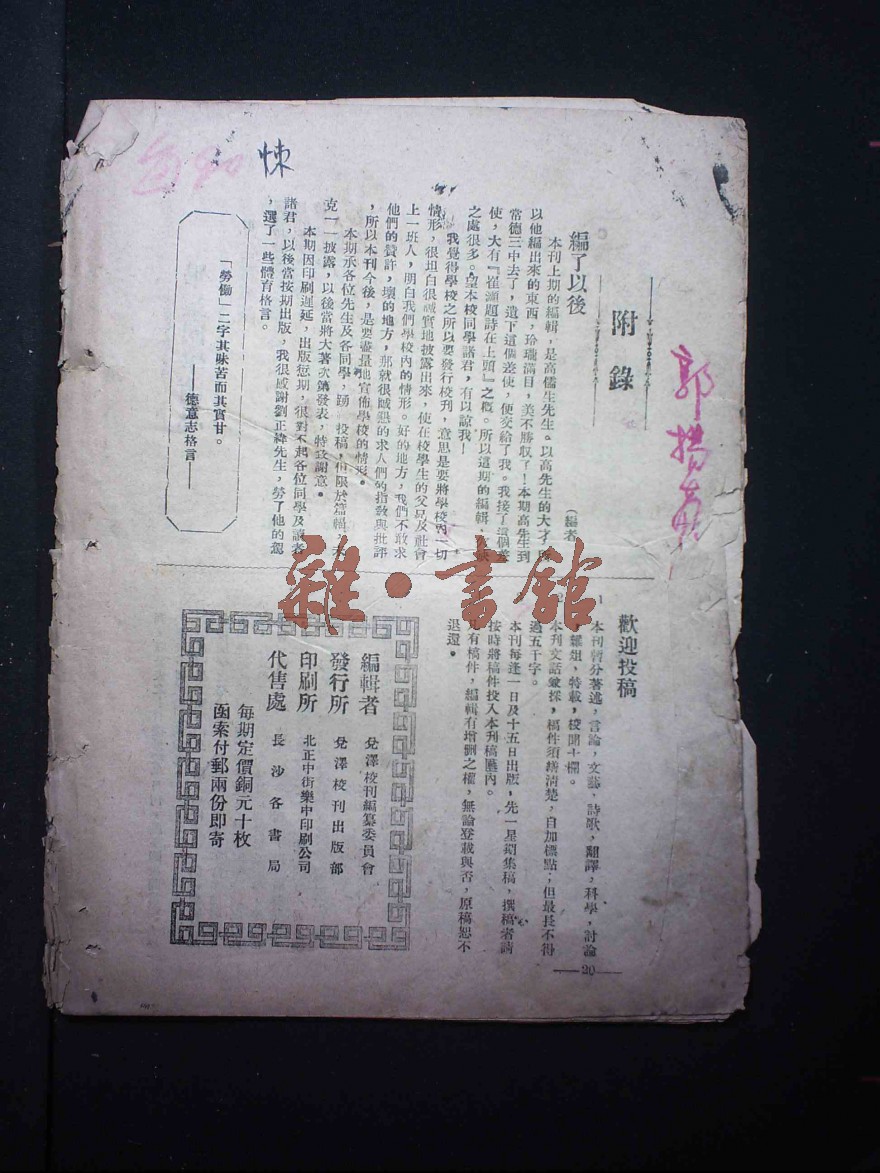 附錄
編了以後
(編者)
本刊上期的編輯，是高儒生先生。以高先生的大才，所
以他編出來的東西，玲瓏滿目，美不勝收了！本期高先生到
常德三中去了，遺下這個差使，便交給了我。我接了這個差
使，大有『崔灝題詩在上頭』之概。所以這期的編輯，
之處很多。望本校同學諸君，有以諒我！
我覺得學校之所以要發行校刊，意思是要將學校內一切
情形，很坦白很誠實地披露出來，使在校學生的父兄及社會
上一班人，明白我們學校內的情形。好的地方，我們不敢求
他們的贊許，壞的地方，那就很誠懇的求人們的指敎與批評
，所以本刊今後，是要盡量地宣佈學校的情形。
本期承各位先生及各同學，踴 投稿，但限於篇幅，未
克一一披露，以後當將大著次第發表，特致謝意。
本期因印刷遲延，出版愆期，很對不起各位同學及讀者
諸君，以後當按期出版，我很感謝劉正緯先生，勞了他的駕
，選了一些體育格言。
「勞働」二字其味苦而其實甘。
——德意志格言——
歡迎投稿
1 本刊暫分著述，言論，文藝，詩歌，翻譯，科學，討論
，雜俎，特載，校聞十欄。
本刊文話兼採，稿件須繕清楚，自加標點，但最長不得
過五千字。
本刊每逢一日及十五日出版，先一星期集稿，撰稿者請
按時將稿件投入本刊稿匭內。
凡有稿件，編輯有增刪之權，無論登載與否，原稿恕不
退還。
編輯者 兌澤校刊編纂委員會
發行所 兌澤校刊出版部
印刷所 北正中街樂中印刷公司
代售處 長沙各書局
每期定價銅元十枚
函案付郵兩份即寄
——20——
雜·書館
悚